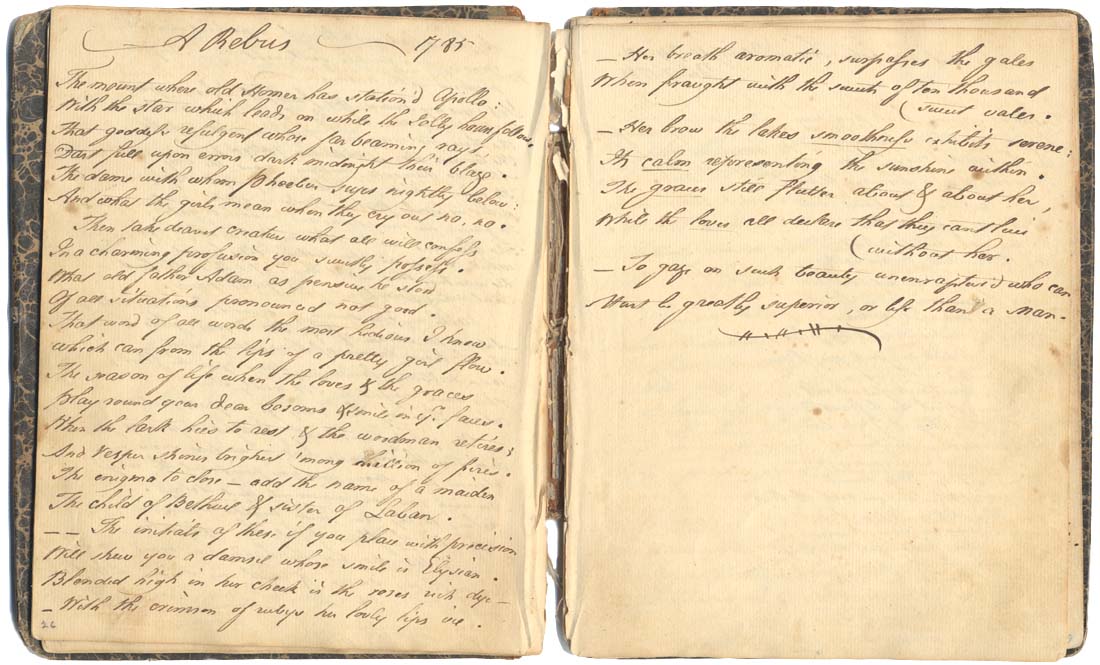 A Rebus 1785
The mount where old Homer has station'd Apollo:
With the star which leads on while the Folly haven follow.
That goddess refulgent whose far beaming rays
Dart full upon errors dark midnight their blaze.
The dame with whom Phoebus sups nightly below:
And what the girls mean when they cry out no, no.
Then take dearest creature what all will confess
In a charming profusion you sweetly possess.
What old father Adam as pensive he stood
Of all situations pronounced not good.
That word of all words the most hedious I know
which can from the lips of a pretty girl flow.
The season of life when the loves & the graces
Play round your dear bosoms & smile in yr. faces.
When the lark hies to rest & the woodman retires;
And Vesper shines brighest 'mong million of fires.
The enigma to close — add the name of a maiden
The child of Bethuel & sister of Laban.
— — The initials of these if you place with precision
Will shew you a damsel whose smile is Elysian.
Blended high in her cheek is the roses rich dye —
— With the crimson of rubys her lovly lips vie.
26
— Her breath aromatic, surpasses the gales
When fraught with the sweets of ten thousand
(sweet vales.
— Her brow the lakes smoothness exhibits serene:
Its calm representing the sunshine within.
The graces still flutter about & about her,
While the loves all declare that they cant live
(without her.
— To gaze on such beauty unenraptur'd who can
Must be greatly superior, or less than a man.